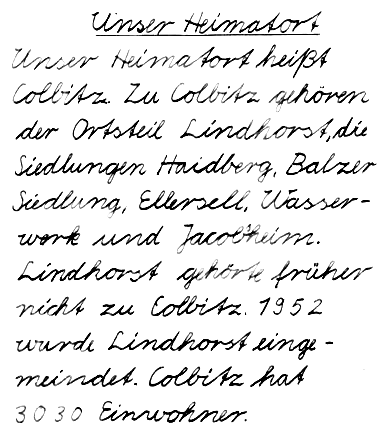 Unser Heimatort
Unser Heimatort heißt
Colbitz. Zu Colbitz gehören
der Ortsteil Lindhorst, die
Siedlungen Haidberg, Balzer
Siedlung, Ellersell, Wasser-
werk und Jacobsheim.
Lindhorst gehörte früher
nicht zu Colbitz. 1952
wurde Lindhorst einge-
meindet. Colbitz hat
3030 Einwohner.